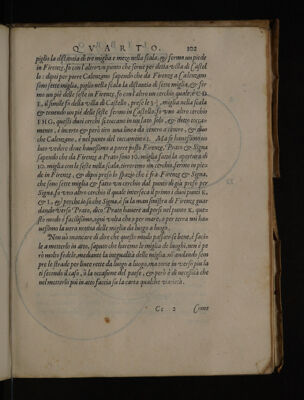 QVARTO. 102
piglio la distantia di tre miglia e mezo nella scala, & fermo un piede
in Firenze, fo con l'altro un punto che serue per detta uilla di Castel
lo: dipoi per porre Calenzano sapendo che da Firenze a Calenzano
sono sette miglia, piglio nella scala la distantia di sette miglia, & fer
mo un piè delle seste in Firenze, fo con l'altro un cerchio quale, è CD
E, il simile fo della uilla di Castello, prese le 3 miglia nella scala
& tenendo un piè delle seste fermo in Castello, fo uno altro cerchio
FHG, questi dui cerchi si toccano in un lato solo, & detto toccam
ento, è incerto & però tiro una linea da centro a centro, & dico
che Calenzano, è nel punto del toccamento I. Ma se hauessimo uo
luto uedere doue hauessimo a porre posto Firenze, Prato & Signa
sapendo che da Firenze a Prato sono 10. miglia fatta la apertura di
10. miglia con le seste nella scala, tireremo un cerchio, fermo un piede
in Firenze, & dipoi preso lo spazio che è fra Firenze & Signa,
che sono sette miglia & fatto un cerchio dal punto di già preso per
Signa fo uno altro cerchio il quale interseca il primo i dui punti K,
& L, & perche io so che Signa, è su la man sinistra di Firenze guar
dando uerso Prato, dico Prato hauere a porsi nel punto K, que
sto modo è facilissimo, ogni uolta che, o per mare, o per terra noi hau
essimo la uera notitia delle miglia da luogo a luogo.
Non uò mancare di dire che questo modo passato se bene, è faci
le a metterlo in atto, saputo che haremo le miglia de luoghi, non è pe
rò molto fedele, mediante la inegualità delle miglia nè andando sem
pre le strade per linee rette da luogo a luogo, ma torte in uerso piu la
ti secondo il caso, ò la occasione del paese, & però è di necessità che
nel metterlo piu in atto faccia su la carta qualche uarietà.
Cc 2 Come